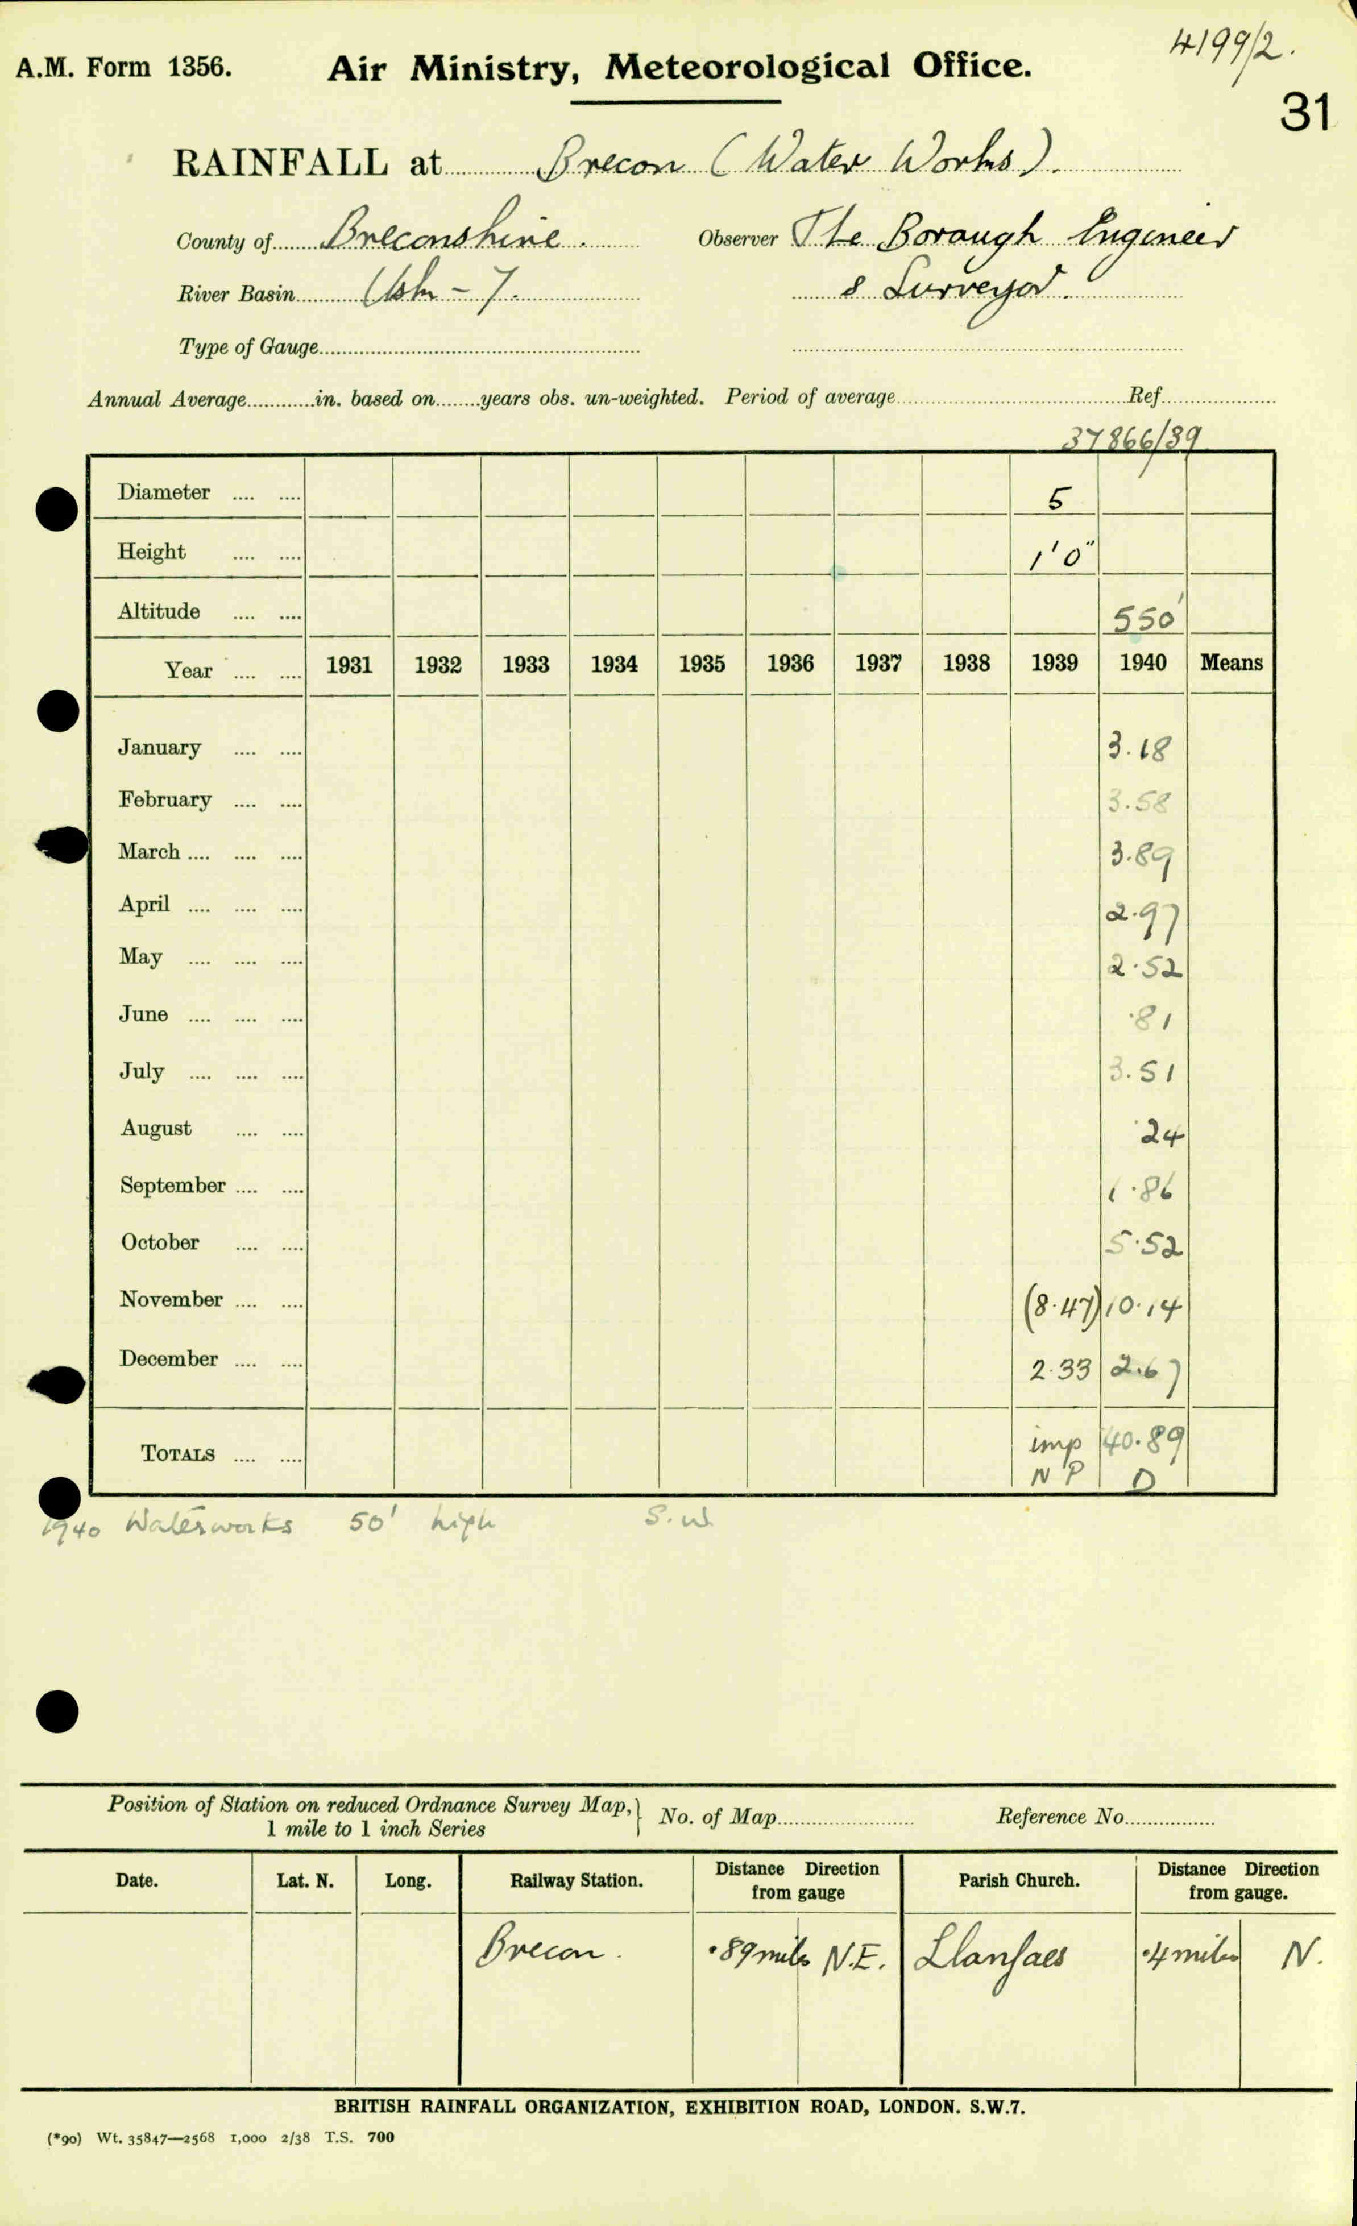 4199/2.
A.M. Form 1356. Air Ministry, Meteorological Office.
31
RAINFALL at Brecon (Water Works).
County of Breconshire. Observer The Borough Engineer
River Basin Usk - 7. & Surveyor.
Type of Gauge
Annual Average in. based on years obs. un-weighted. Period of average Ref.
37866/39
Diameter 5
Height 1'0"
Altitude 550'
Year 1931 1932 1933 1934 1935 1936 1937 1938 1939 1940 Means
January 3.18
February 3.58
March 3.89
April 2.97
May 2.52
June .81
July 3.51
August .24
September 1.86
October 5.52
November (8.47) 10.14
December 2.33 2.67
TOTALS imp 40.89
NP D
1940 Waterworks 50' high S.W.
Position of Station on reduced Ordnance Survey Map, No. of Map Reference No.
1 mile to 1 inch Series
Date. Lat. N. Long. Railway Station. Distance Direction from gauge Parish Church. Distance Direction from gauge.
Brecon. .89 miles N.E. Llanfaes .4 miles N.
BRITISH RAINFALL ORGANIZATION, EXHIBITION ROAD, LONDON. S.W.7.
(*90) Wt. 35847—2568 1,000 2/38 T.S. 700